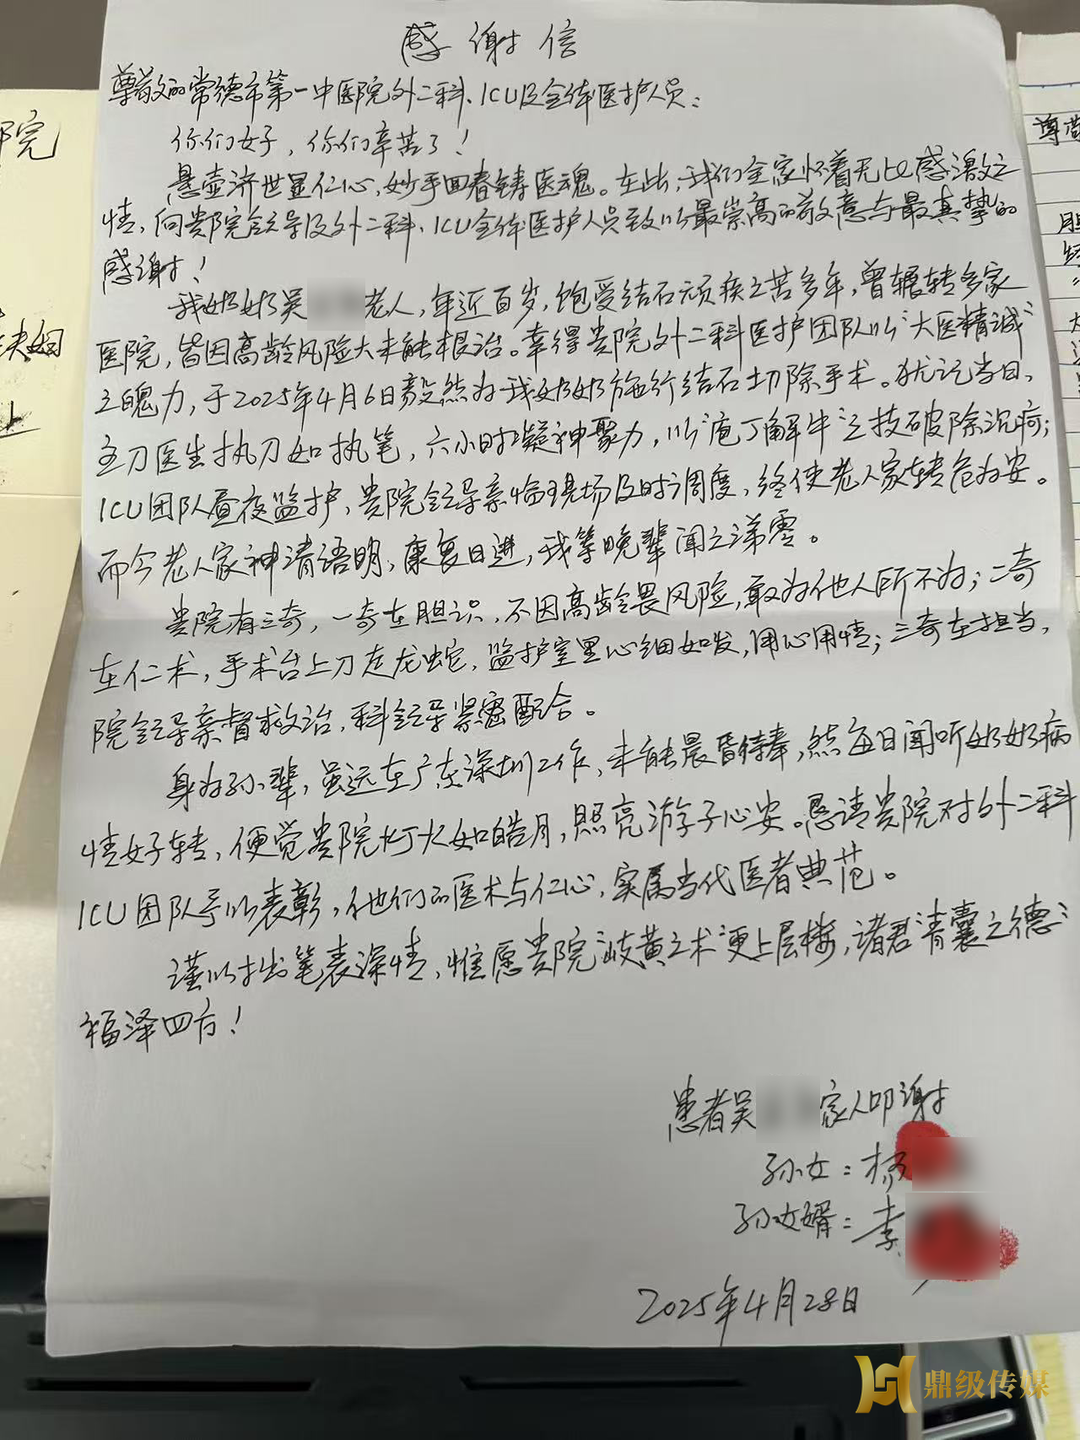 感谢信
尊敬的常德市第一中医院外二科、ICU及全体医护人员：
你们好，你们辛苦了！
悬壶济世显仁心，妙手回春铸医魂。在此，我们全家怀着无比感激之
情，向贵院领导及外二科、ICU全体医护人员致以最崇高的敬意与最真挚的
感谢！
我奶奶吴 老人，年近百岁，饱受结石顽疾之苦多年，曾辗转多家
医院，皆因高龄风险大未能根治。幸得贵院外二科医护团队以“大医精诚”
之魄力，于2025年4月6日毅然为我奶奶施行结石切除手术。犹记当日，
主刀医生执刀如执笔，六小时凝神聚力，以“庖丁解牛”之技破除沉疴；
ICU团队昼夜监护，贵院领导亲临现场及时调度，终使老人家转危为安。
而今老人家神清语明，康复日进，我等晚辈闻之涕零。
贵院有三奇，一奇在胆识，不因高龄畏风险，敢为他人所不为；二奇
在仁术，手术台上刀走龙蛇，监护室里心细如发，用心用情；三奇在担当，
院领导亲督救治，科领导紧密配合。
身为孙辈，虽远在广东深圳工作，未能晨昏侍奉，然每日闻听奶奶病
情好转，便觉贵院灯火如皓月，照亮游子心安。恳请贵院对外二科
ICU团队予以表彰，他们的医术与仁心，实属当代医者典范。
谨以拙笔表深情，惟愿贵院“岐黄之术”更上层楼，诸君“青囊之德”
福泽四方！
患者吴 家人叩谢
孙女：杨
孙女婿：李
2025年4月28日
鼎级传媒
院
夫妇
尊敬